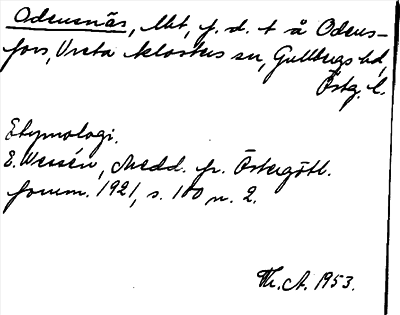 Odensnäs, Mt, f. d. t å Odens-
fors, Vreta klosters sn, Gullbergs hd,
Östg. l.
Etymologi.
E. Wessén, Medd. fr. Östergötl.
fornm. 1921, s. 100 n. 2.
Th. A. 1953.